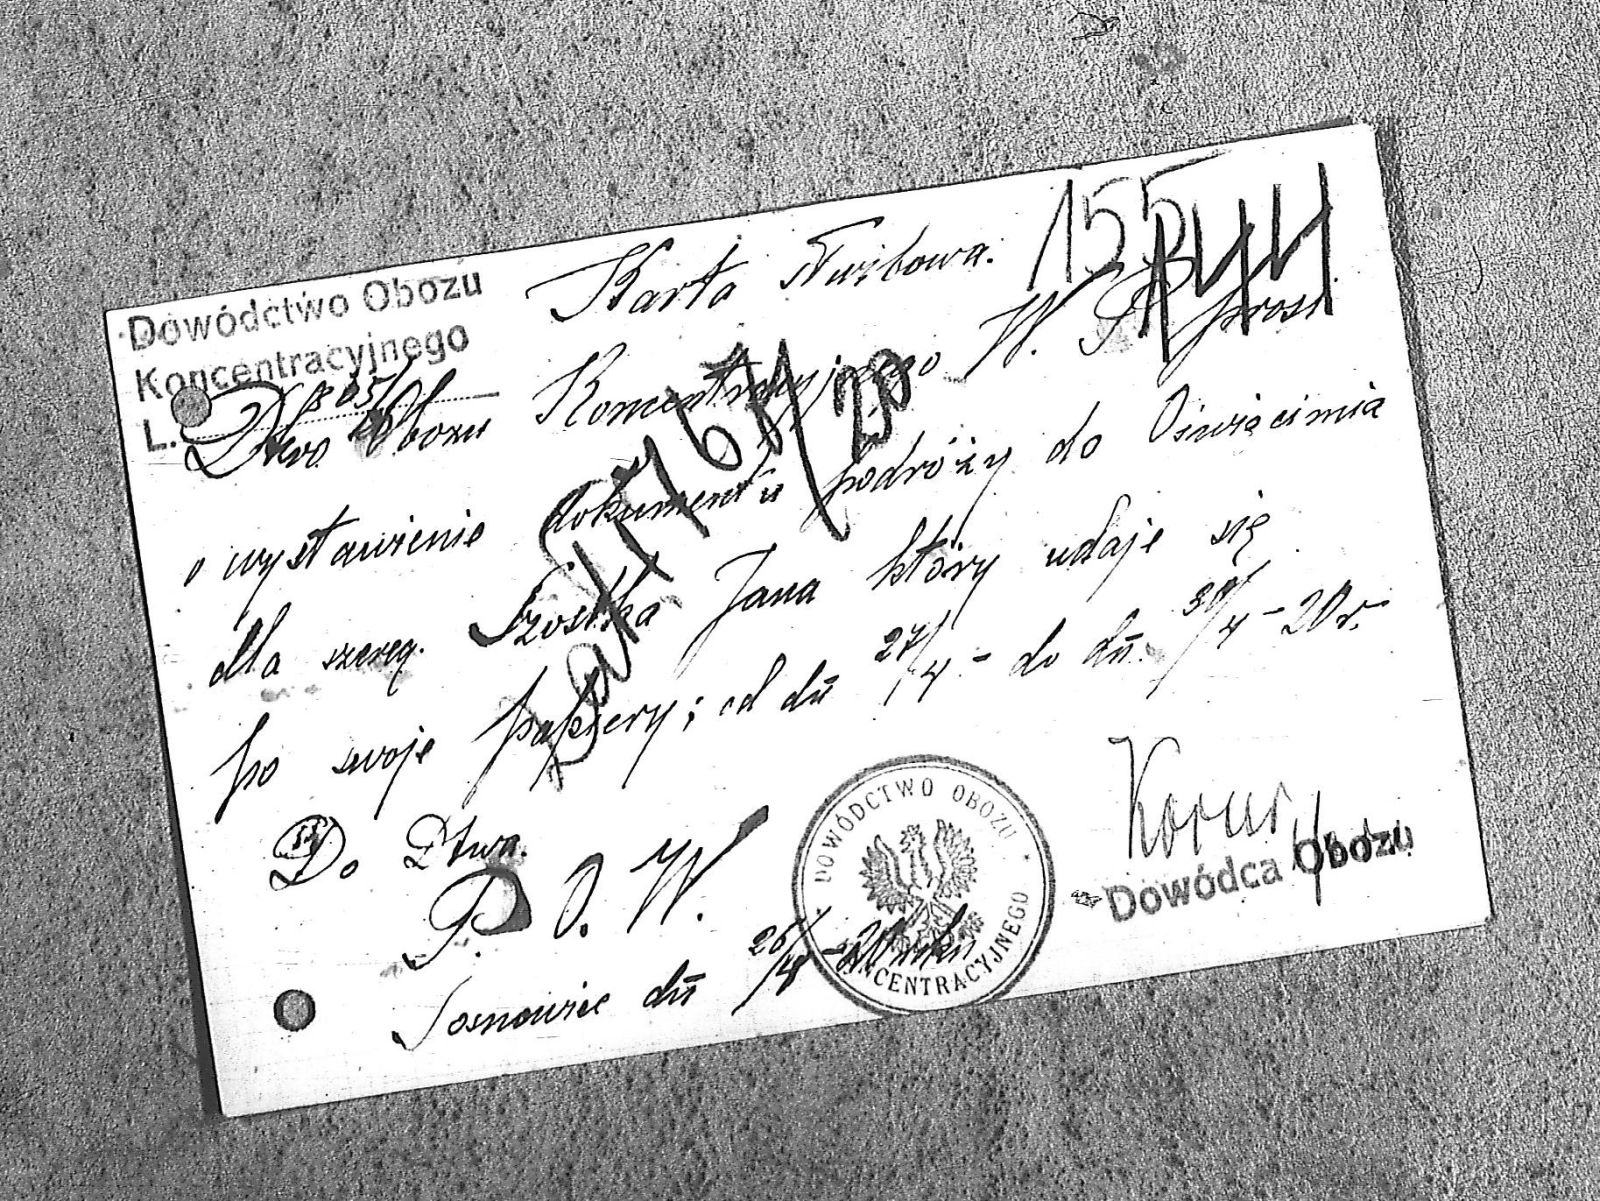 Karta służbowa.
155
Dowództwo Obozu
Koncentracyjnego
L.
Dtwo Obozu Koncentracyjnego W. P. prosi
o wystawienie dokumentu podróży do Oświęcimia
dla szereg. Szostka Jana który udaje się
po swoje papiery; od dń 27/4 - do dń. 30/4 - 20 r.
Do Dtwa.
P. O. W.
Sosnowiec dń 26/4 - 20 roku
DOWÓDCTWO OBOZU KONCENTRACYJNEGO
Dowódca Obozu